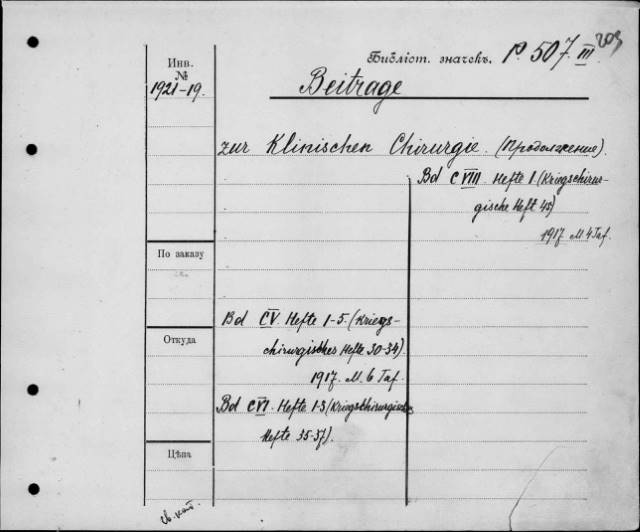 Библіот. значекъ. P. 507. III
203
Инв.
№
1921-19.
Beitrage
zur Klinischen Chirurgie. (Продолжение).
Bd C VIII. Hefte 1 (Kriegschirur-
gische Heft 43)
1917. M. 4 Taf.
По заказу
Bd CV. Hefte 1-5. (Kriegs-
chirurgisches Hefte 30-34)
1917. M. 6 Taf.
Откуда
Bd CVI. Hefte 1-3 (Kriegschirurgische
Hefte 35-37).
Цѣна